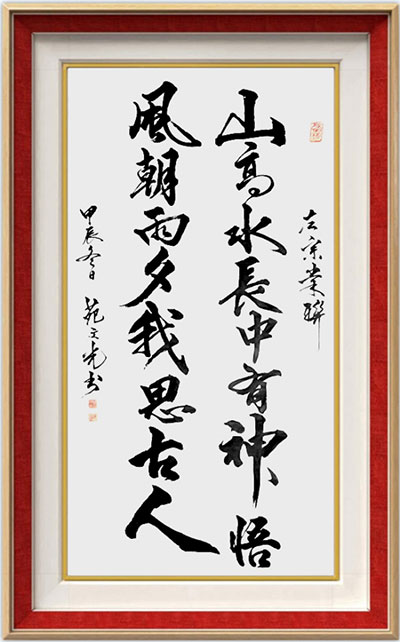 左宗棠聯
山高水長中有神悟
風朝雨夕我思古人
甲辰冬日 范文光书